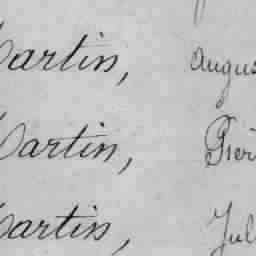 Martin, Augus
Martin, Pier
Martin, Jul